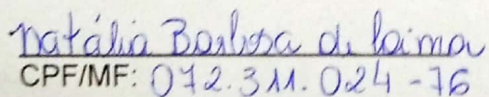 Natália Barbosa de Lima
CPF/MF: 072.311.024-76